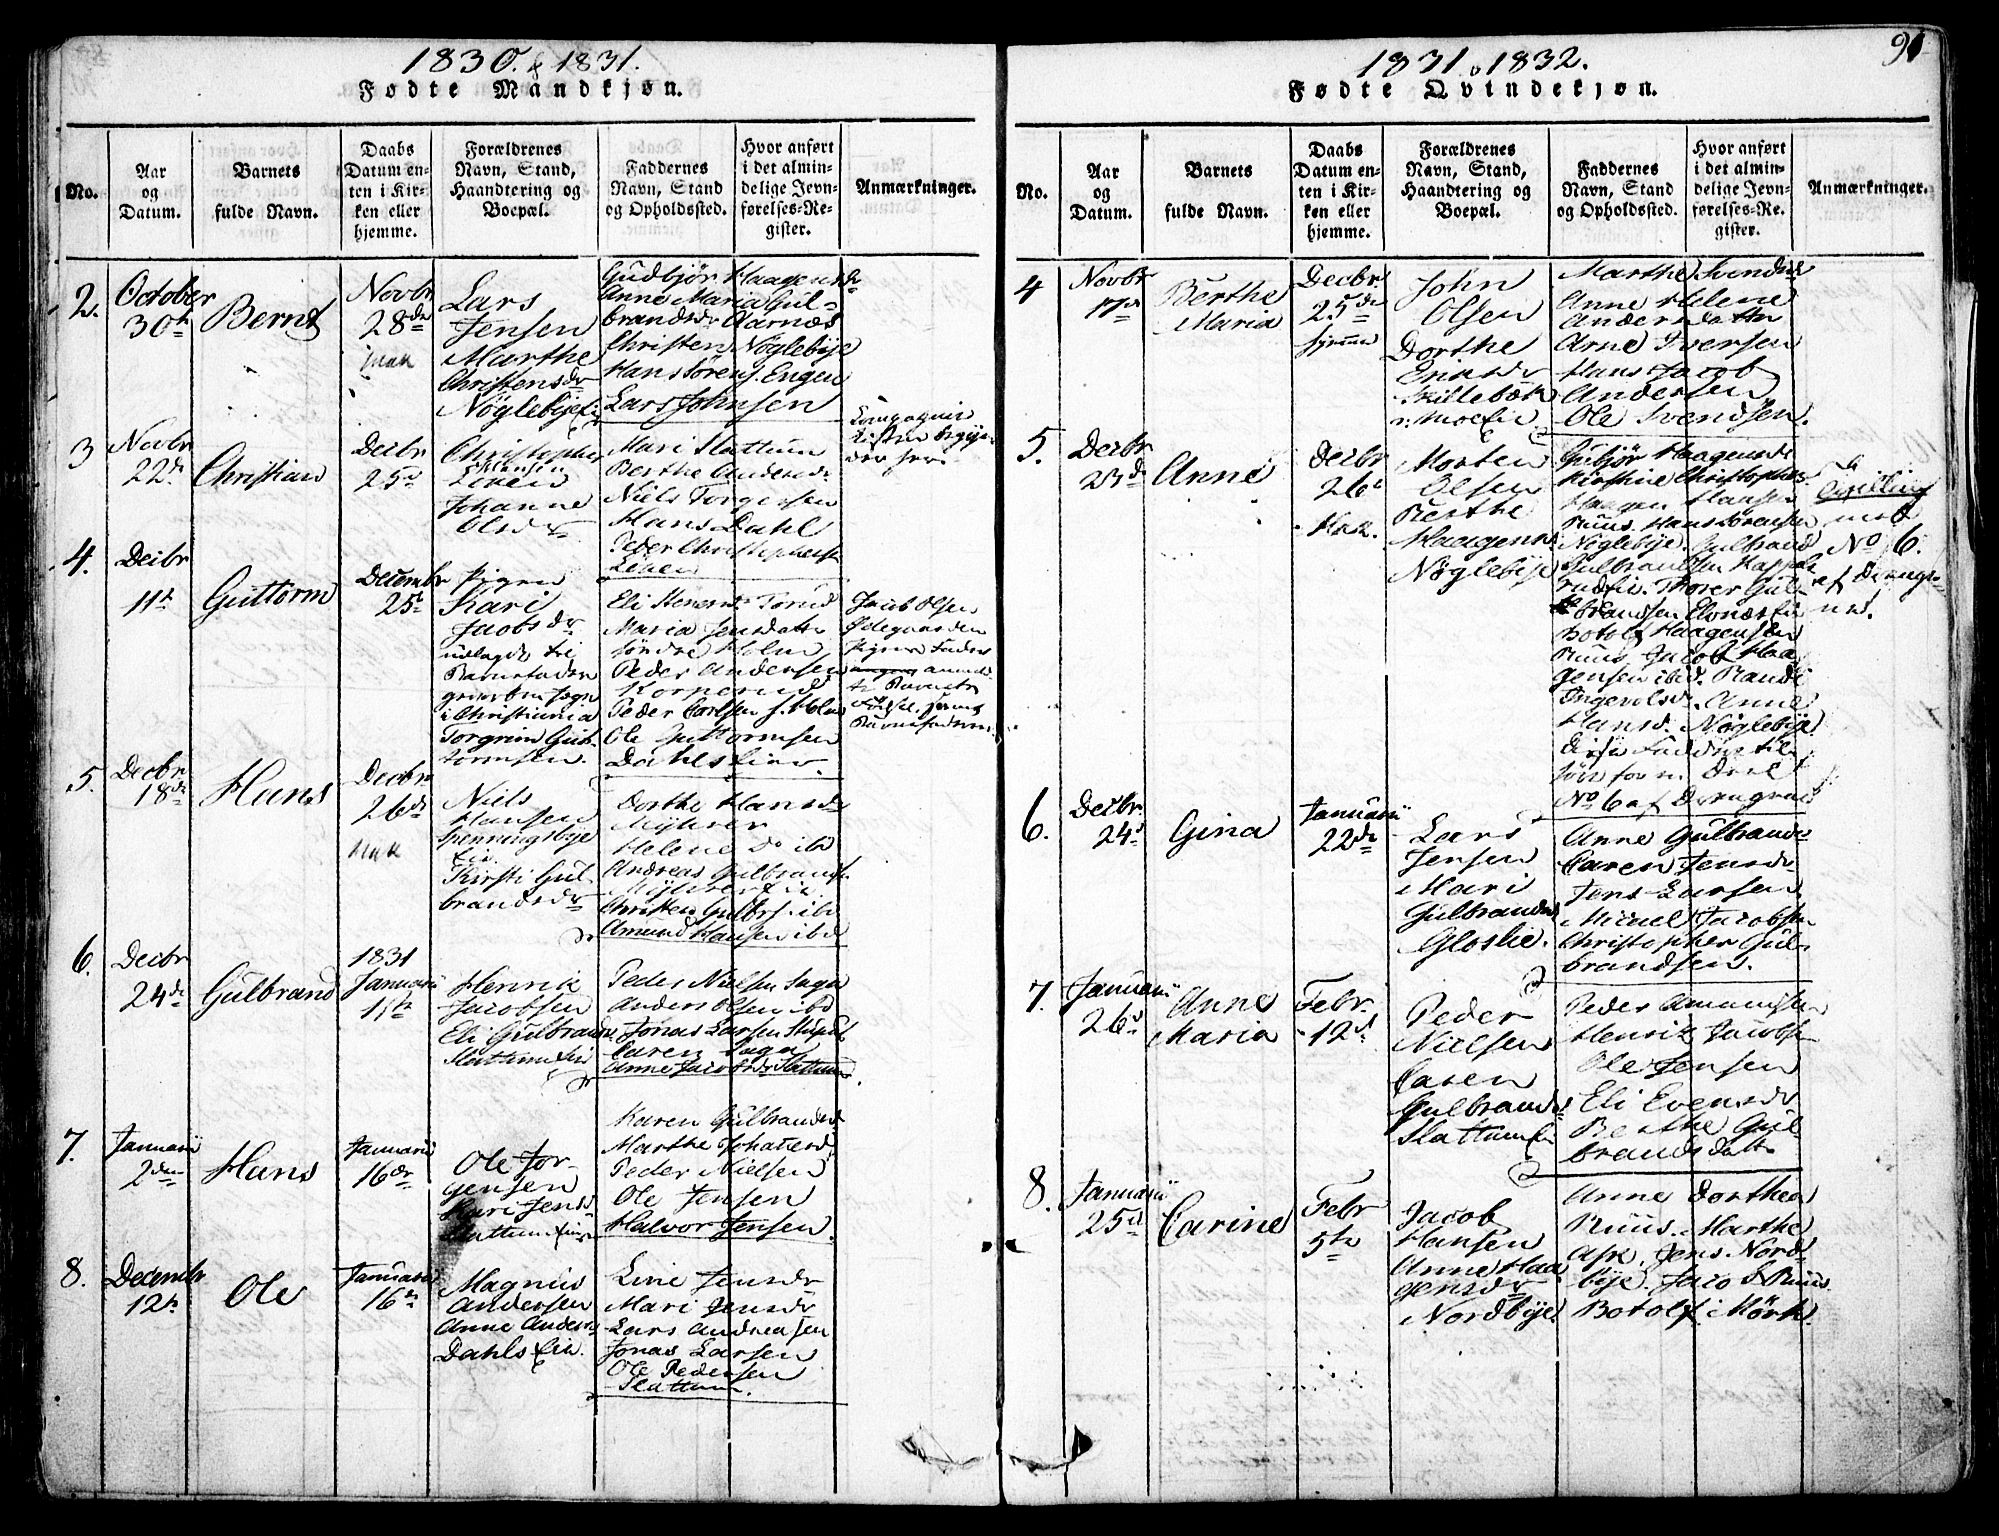 1830. & 1831.
Fødte Mandkjøn.
No.
Aar
og
Datum.
Barnets
fulde Navn.
Daabs
Datum en-
ten i Kir-
ken eller
hjemme.
Forældrenes
Navn, Stand,
Haandtering og
Boepæl.
Faddernes
Navn, Stand
og Opholdssted.
Hvor anført
i det almin-
delige Jevn-
førelses-Re-
gister.
Anmærkninger.
2.
October
30te
Bernt
Novbr
28de
Lars
Jensen
Marthe
Christensdr
Nøglebyeeie
Gudbjør Haagensdr
Anne Maria Gul-
brandsdr Aarnæs
Christen Nøglebye
Hans Sørens. Engen
Lars Johnsen
3
Novbr
22d
Christian
Decbr
25d
Christopher
Hansen
Johanne
Olsdr
Mari Slattum
Berthe Andersdr
Niels Torgersen
Hans Dahl
Peder Christophersen
4.
Decbr
11te
Guttorm
Decembr
25de
Pigen
Kari
Jacobsdr
udlagde til
Barnefader
i Christiania
Torgrim Gut-
tormsen.
Maria Jensdatter
søndre Holm
Peder Andersen
Korperud
Peder Carlsen s. Holm
Ole Guttormsen
Dahlseie.
Jacob Olsen
Ødegaarden
Pigens Fader
5.
Decbr
18de
Hans
Decbr
26de
Niels
Hansen
Spenningsbye
eie.
Kirsti Gul-
brandsdr
Dorthe Hansdr
Myhrer
Helene do ibd
Andreas Gulbrands.
Myhrereie
Christen Gulbrs. ibd
Amund Hansen ibd
6.
Decbr
24de
Gulbrand
1831
Januarii
1ste
Henrik
Jacobsen
Eli Gulbrandsd.
Slattumeie
Peder Nielsen Sagen
Anders Olsen ibd
Jonas Larsen
Caren Sagen
Anne Jacobsdr Slattum.
7.
Januarii
2den
Hans
Januarii
16de
Ole Jør-
gensen
Kari Jensd.
Slattumeie
Karen Gulbrandsd.
Marthe Johannesd.
Peder Nielsen
Ole Jensen
Halvor Jensen.
8.
Decembr
12te
Ole
Januarii
16de
Magnus
Andersen
Anne Andersdr
Dahlseie.
Line Jensdr
Mari Jensdr
Lars Andreasen
Jonas Larsen
Ole Pedersen
Slattum.
1831 & 1832.
91
Fødte Qvindekjøn.
No.
Aar
og
Datum.
Barnets
fulde Navn.
Daabs
Datum en-
ten i Kir-
ken eller
hjemme.
Forældrenes
Navn, Stand,
Haandtering og
Boepæl.
Faddernes
Navn, Stand
og Opholdssted.
Hvor anført
i det almin-
delige Jevn-
førelses-Re-
gister.
Anmærkninger.
4
Novbr
17de
Berthe
Maria
Decbr
25de
John
Olsen
Dorthe
Eriksdr
Skillebæk
Marthe Svendsdr
Anne Helene
Andersdatter
Arne Iversen
Hans Jacob
Andersen
Ole Svendsen.
5.
Decbr
23de
Anne
Decbr
26d
Morten
Olsen
Berthe
Haagensd.
Nøglebye
Gubjør Haagensdr
Kirstine Christophers.
Haagen Hansen
Ruus. Hans Sørensen
Nøglebye. Gulbrand
Gulbrandsen
Thorer Gul-
brandsen
Botolf Haagensen
Ruus, Jacob Haa-
gensen ibid. Randi
Ingevolsd. Anne
Hansd. Nøglebye
disse Faddere til-
No 6 af Drengene
Tvilling
med
No 6.
af Drenge-
ne.
6.
Decbr
24d
Gina
Januarii
22de
Lars
Jensen
Mari
Gulbrandsd.
Gloslie.
Anne Gulbrandsd.
Caren Jensdr
Jens Larsen
Micael Jacobsen
Christopher Gul-
brandsen.
7.
Januarii
26d
Anne
Maria
Febr.
12d
Peder
Nielsen
Caren
Gulbrandsd
Slattumeie
Peder Amundsen
Henrik Jacobsen
Ole Jensen
Eli Evensdr
Berthe Gul-
brandsdatt.
8.
Januarii
25d
Carine
Febr
5te
Jacob
Hansen
Anne Haa-
gensdr
Nordbye
Anne Dorthea
Ruus. Marthe
Ask. Jens Nord-
bye. Jacob Ruus
Botolf Mörk.